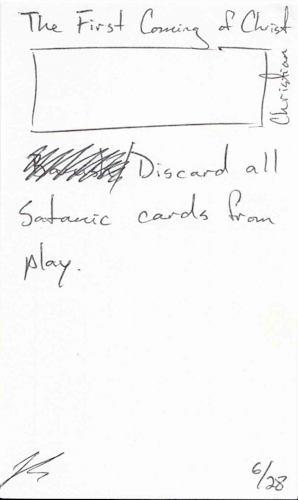 The First Coming of Christ
Christian
Discard all
Satanic cards from
play.
6/28